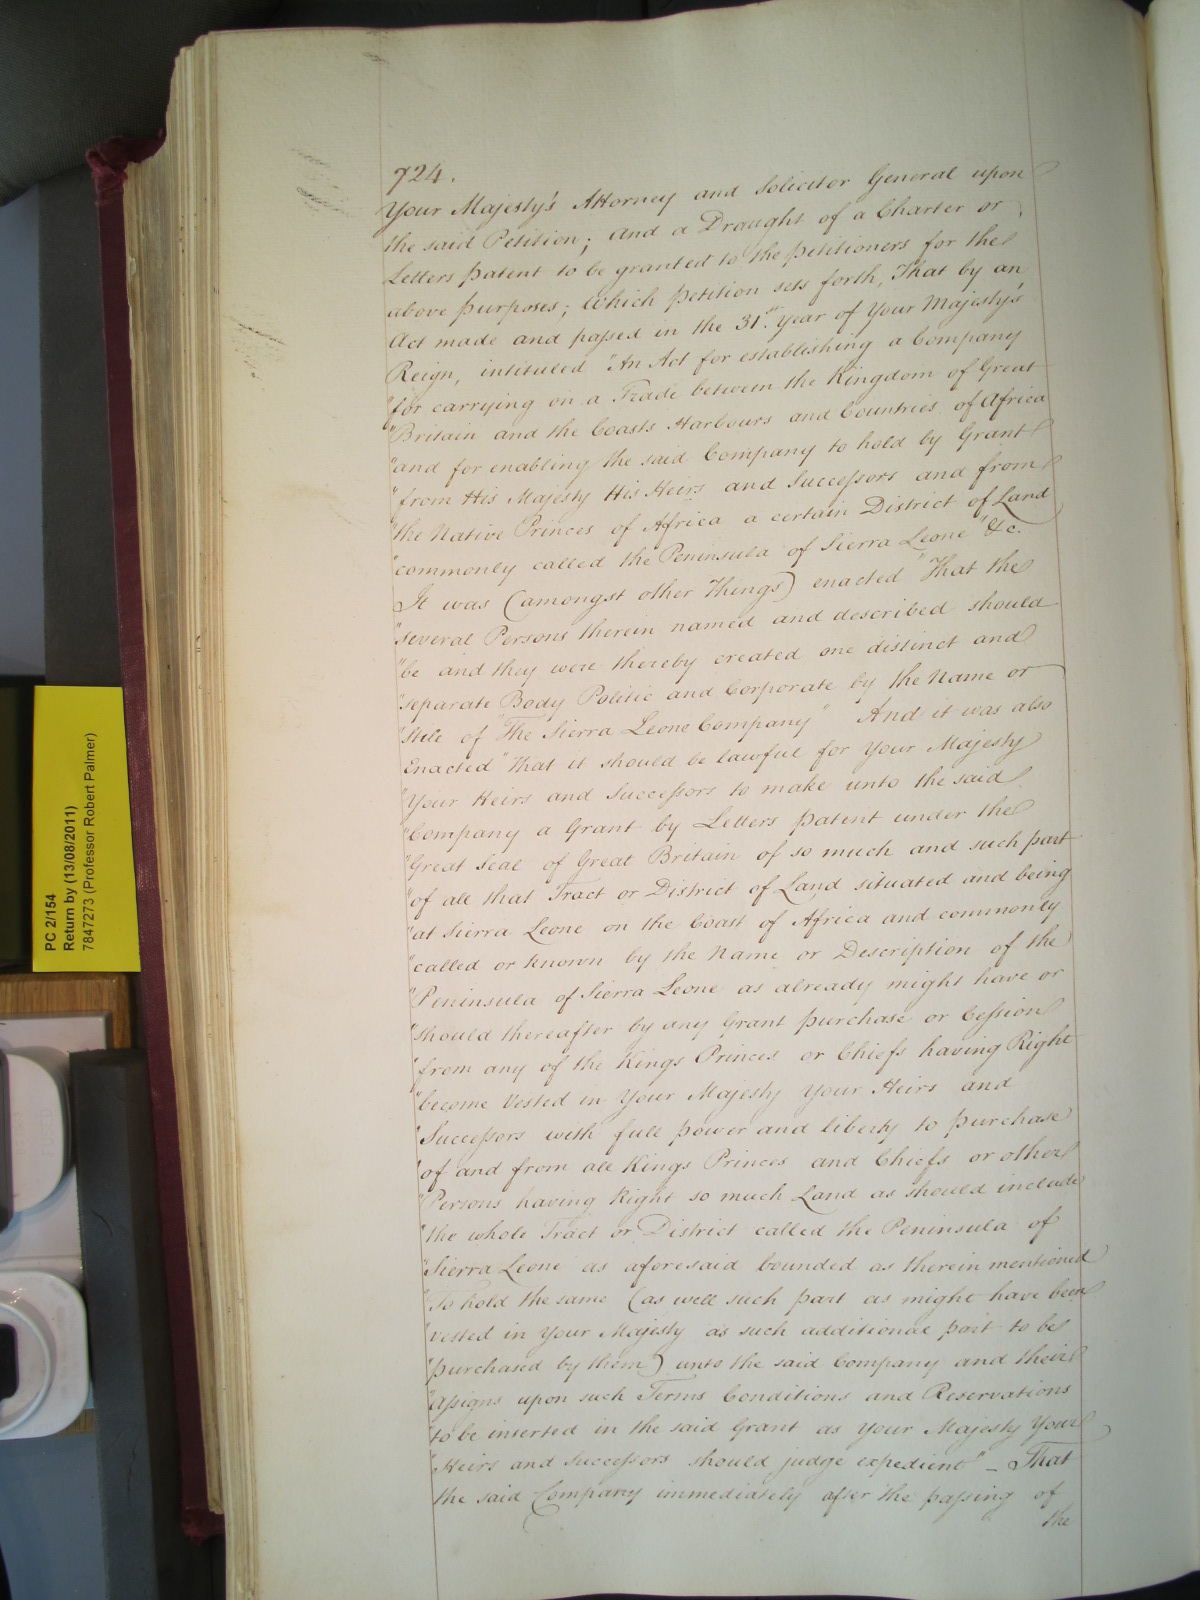 724.
Your Majesty's Attorney and Solicitor General upon
the said Petition; and a Draught of a Charter or
Letters patent to be granted to the petitioners for the
above purposes; Which petition sets forth, That by an
Act made and passed in the 31st. Year of Your Majesty's
Reign, intituled "An Act for establishing a Company
"for carrying on a Trade between the Kingdom of Great
"Britain and the Coasts Harbours and Countries of Africa
"and for enabling the said Company to hold by Grant
"from His Majesty His Heirs and Successors and from
"the Native Princes of Africa a certain District of Land
"commonly called the Peninsula of Sierra Leone" &c.
It was (amongst other Things) enacted "That the
"several Persons therein named and described should
"be and they were thereby created one distinct and
"separate Body Politic and Corporate by the Name or
"Stile of "The Sierra Leone Company" And it was also
Enacted "That it should be lawful for Your Majesty
"Your Heirs and Successors to make unto the said
"Company a Grant by Letters patent under the
"Great Seal of Great Britain of so much and such part
"of all that Tract or District of Land situated and being
"at Sierra Leone on the Coast of Africa and commonly
"called or known by the Name or Description of the
"Peninsula of Sierra Leone as already might have or
"should thereafter by any Grant purchase or Cession
"from any of the Kings Princes or Chiefs having Right
"become Vested in Your Majesty Your Heirs and
"Successors with full power and liberty to purchase
"of and from all Kings Princes and Chiefs or other
"Persons having Right so much Land as should include
"the whole Tract or District called the Peninsula of
"Sierra Leone as aforesaid bounded as therein mentioned
"To hold the same (as well such part as might have been
"vested in Your Majesty as such additional part to be
"purchased by them) unto the said Company and their
"Assigns upon such Terms Conditions and Reservations
"to be inserted in the said Grant as Your Majesty Your
"Heirs and Successors should judge expedient" – That
the said Company immediately after the passing of
the
PC 2/154
Return by (13/08/2011)
7847273 (Professor Robert Palmer)